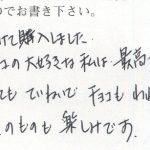 のでお書き下さい。
けて購入しました.
コの大好きな私は 最高
ても ていねいで チョコも わ
のものも 楽しみです.